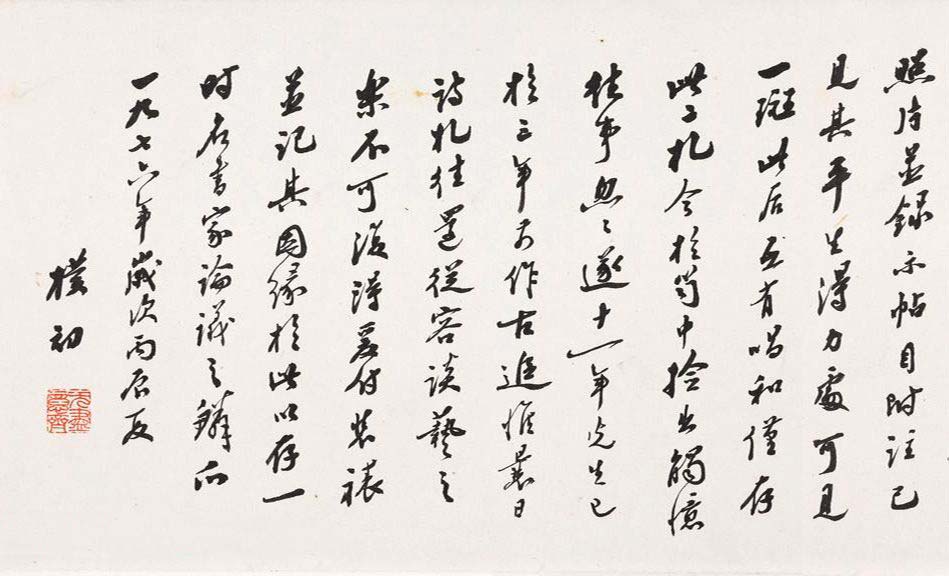 照片並録示帖目附注已
見其平生得力處可見
一斑此后互有唱和僅存
此二札今於笥中撿出觸憶
往事忽々遂十一年先生已
於三年前作古追惟曩日
詩札往還從容談藝之
樂不可復得爰付裝裱
並記其因緣於此以存一
時名書家論議之鱗爪
一九七六年歲次丙辰夏
樸初